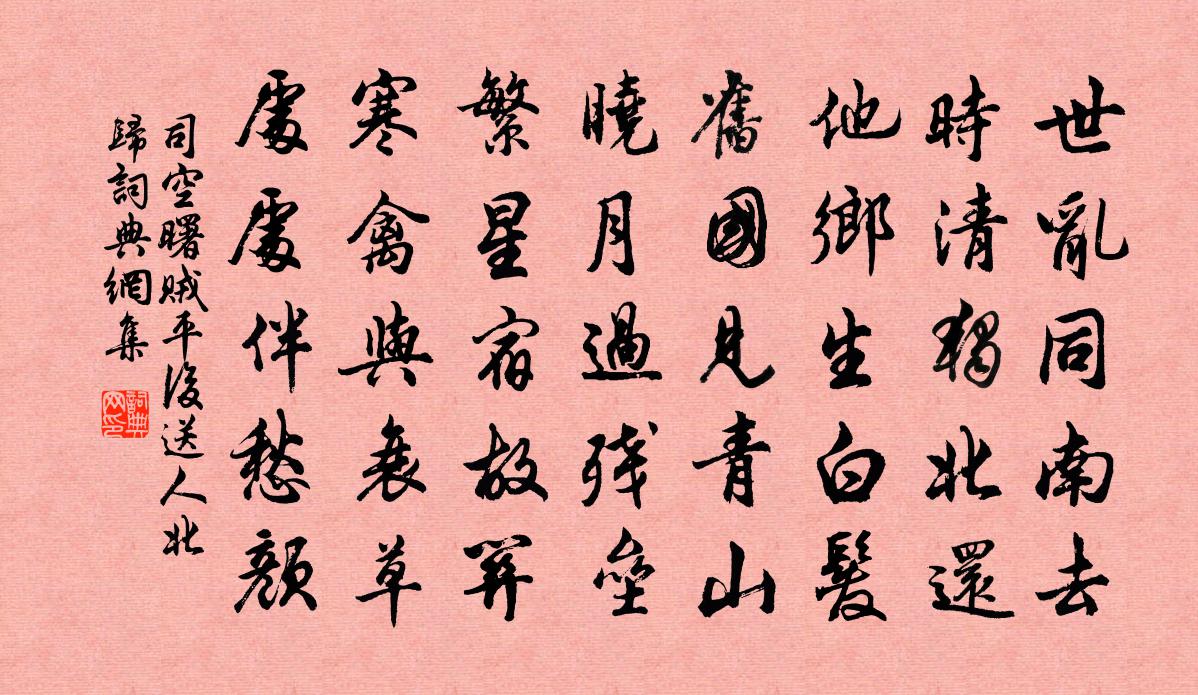 世亂同南去
時清獨北還
他鄉生白髮
舊國見青山
曉月過殘壘
繁星宿故關
寒禽與衰草
處處伴愁顏
司空曙賊平後送人北
歸詞典網集
詞典
网印